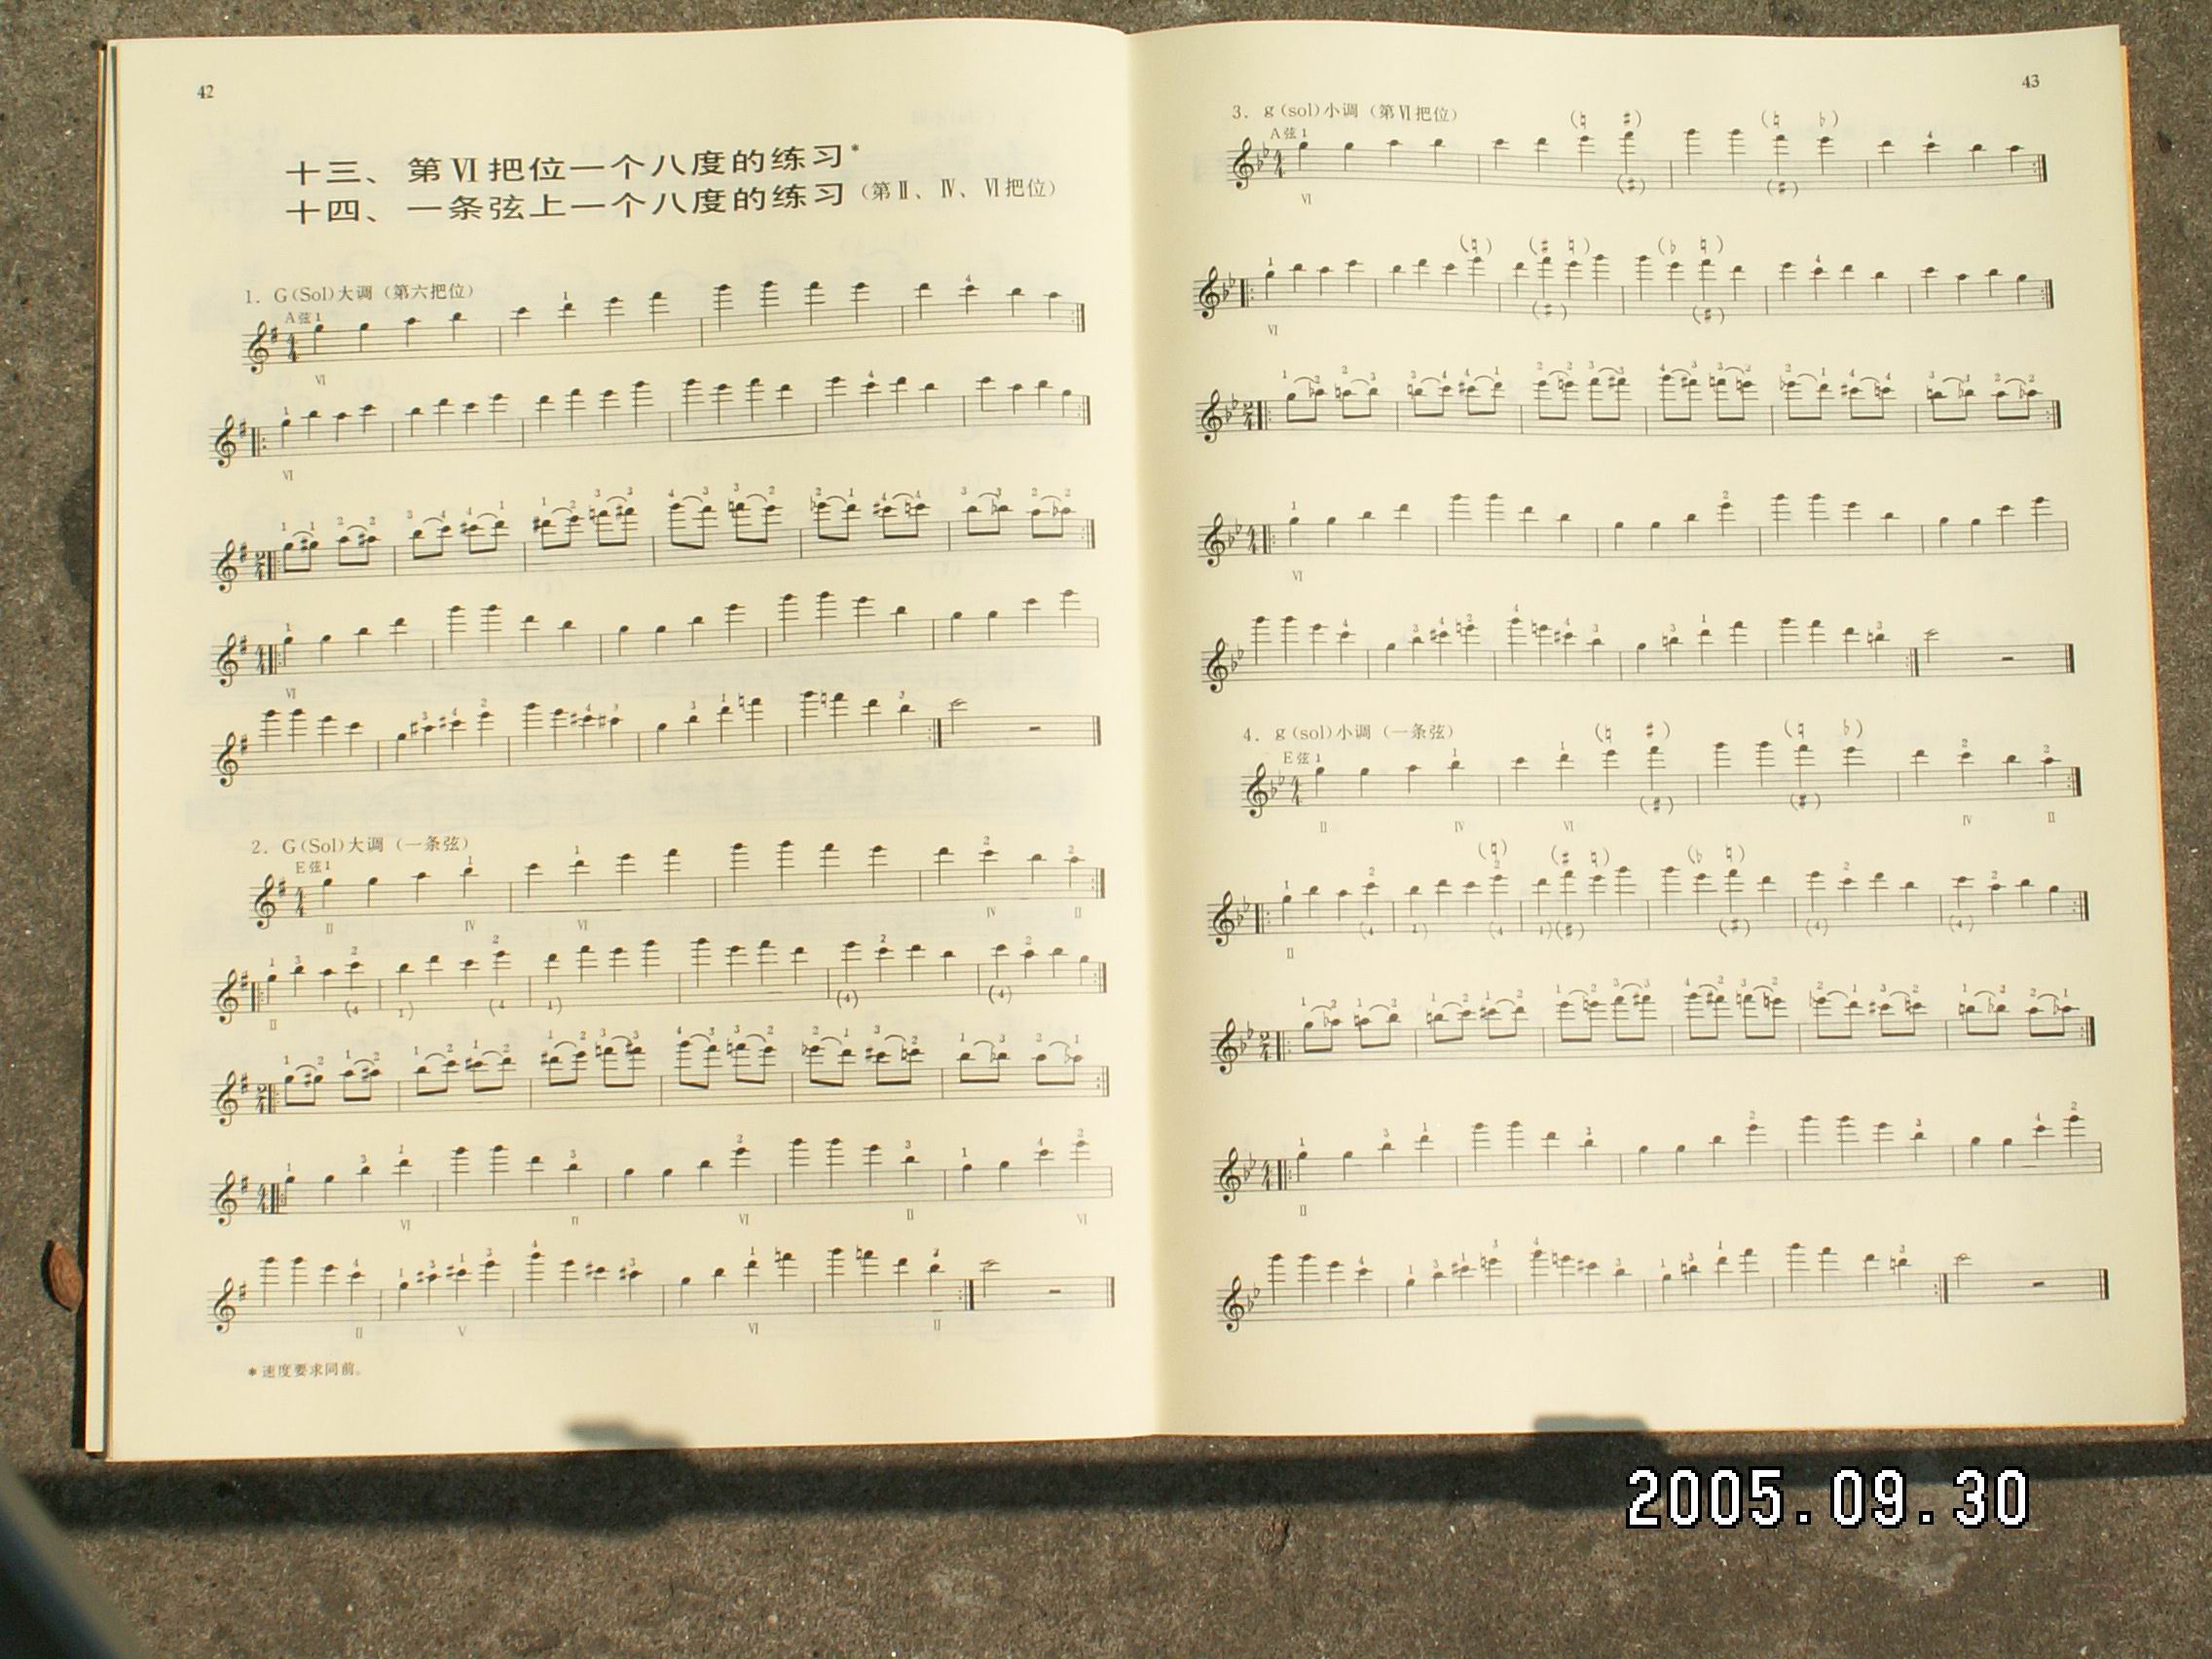 42
十三、第Ⅵ把位一个八度的练习*
十四、一条弦上一个八度的练习(第Ⅱ、Ⅳ、Ⅵ把位)
1. G(Sol)大调(第六把位)
A弦1
Ⅵ
Ⅵ
Ⅵ
2. G(Sol)大调(一条弦)
E弦1
Ⅱ Ⅳ Ⅵ Ⅳ Ⅱ
Ⅱ
Ⅵ Ⅱ Ⅵ Ⅱ Ⅵ
Ⅱ Ⅴ Ⅵ Ⅱ
*速度要求同前。
43
3. g(sol)小调(第Ⅵ把位)
A弦1
Ⅵ
Ⅵ
Ⅵ
4. g(sol)小调(一条弦)
E弦1
Ⅱ Ⅳ Ⅵ Ⅳ Ⅱ
Ⅱ
Ⅱ
2005.09.30